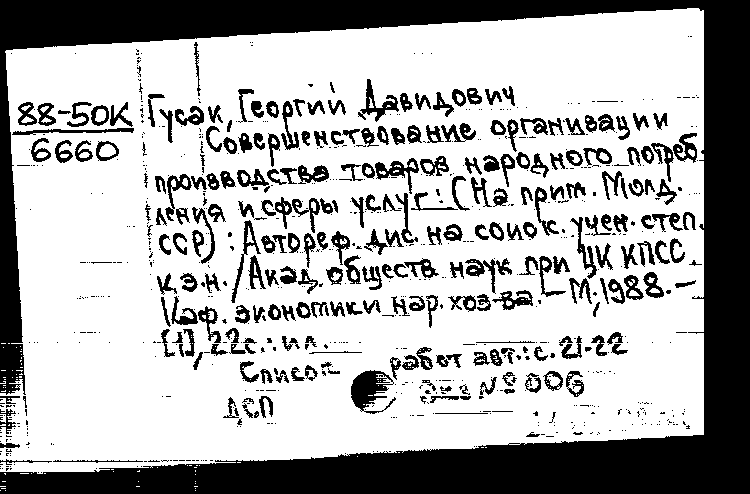 88-50К
6660
Гусак, Георгий Давидович
Совершенствование организации
производства товаров народного потреб-
ления и сферы услуг: (На прим. Молд.
ССР): Автореф. дис. на соиск. учен. степ.
к.э.н. / Акад. обществ. наук при ЦК КПСС.
Каф. экономики нар. хоз-ва. – М., 1988. –
[1], 22с.: ил.
Список работ авт.: с. 21-22
ДСП Экз № 006